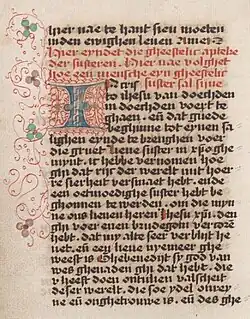 hier nae te hant sien moeten
in den ewighen leuen Amen
Hier eyndet die gheestelic apteke
der susteren. Hier nae volghet
hoe een mensche eyn gheestelic
suster sal sijne
In
to ihesu van doechden
in doechden voert te
gaen: en dat guede
beghinne tot eynen sa
lighen eynde te brenghen voer
die gruet lieue suster in xpo ghe
mynt. ic hebbe vernomen hoe
ghi dat rijc der werelt mit hoer
re sierheit versmaet hebt. ende
een oetmoedighe suster hebt be
ghonnen te werden. om die myn
ne ons lieuen heren ihesu xpi. den
ghi voer enen brudegom vercoren
hebt. dat my alte seer verblidt
het. en een lieue nyemeer ghe
weest is Ghebenedijt sy god van
wes ghenaden ghi dat hebt. die
v heeft doen ontulien valscheit
deser werelt. die soe ydel onrey
ne en onghetrouwe is. en des ghe